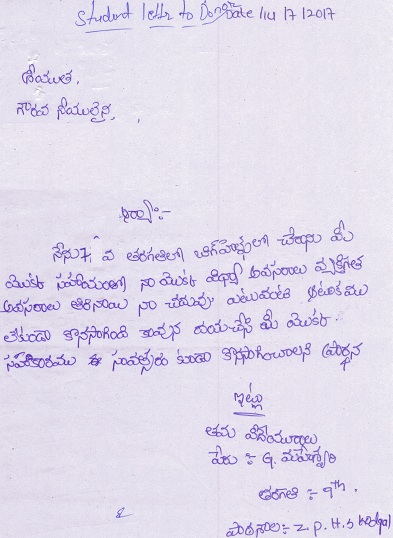 Student letter to Donor Date 14/7/2017
శ్రీయుత,
గౌరవ నీయులైన,
ఆర్యా:-
నేను 7 వ తరగతిలో చేరాను మీ
మొక్క సహాయంతో నా మొక్క చిన్న అవసరాలు వ్యక్తిగత
అవసరాలు తీరినాయి నా చదువు ఎటువంటి ఆటంకము
లేకుండా కొనసాగింది కావున దయచేసి మీ మొక్క
సహకారము ఈ సంవత్సరం కుడా కొనసాగించాలని ప్రార్థన
ఇట్లు
తమ విదేయురాలు
పేరు :- G. మహేశ్వరి
తరగతి :- 9th.
పాఠశాల:- Z.P.H.S